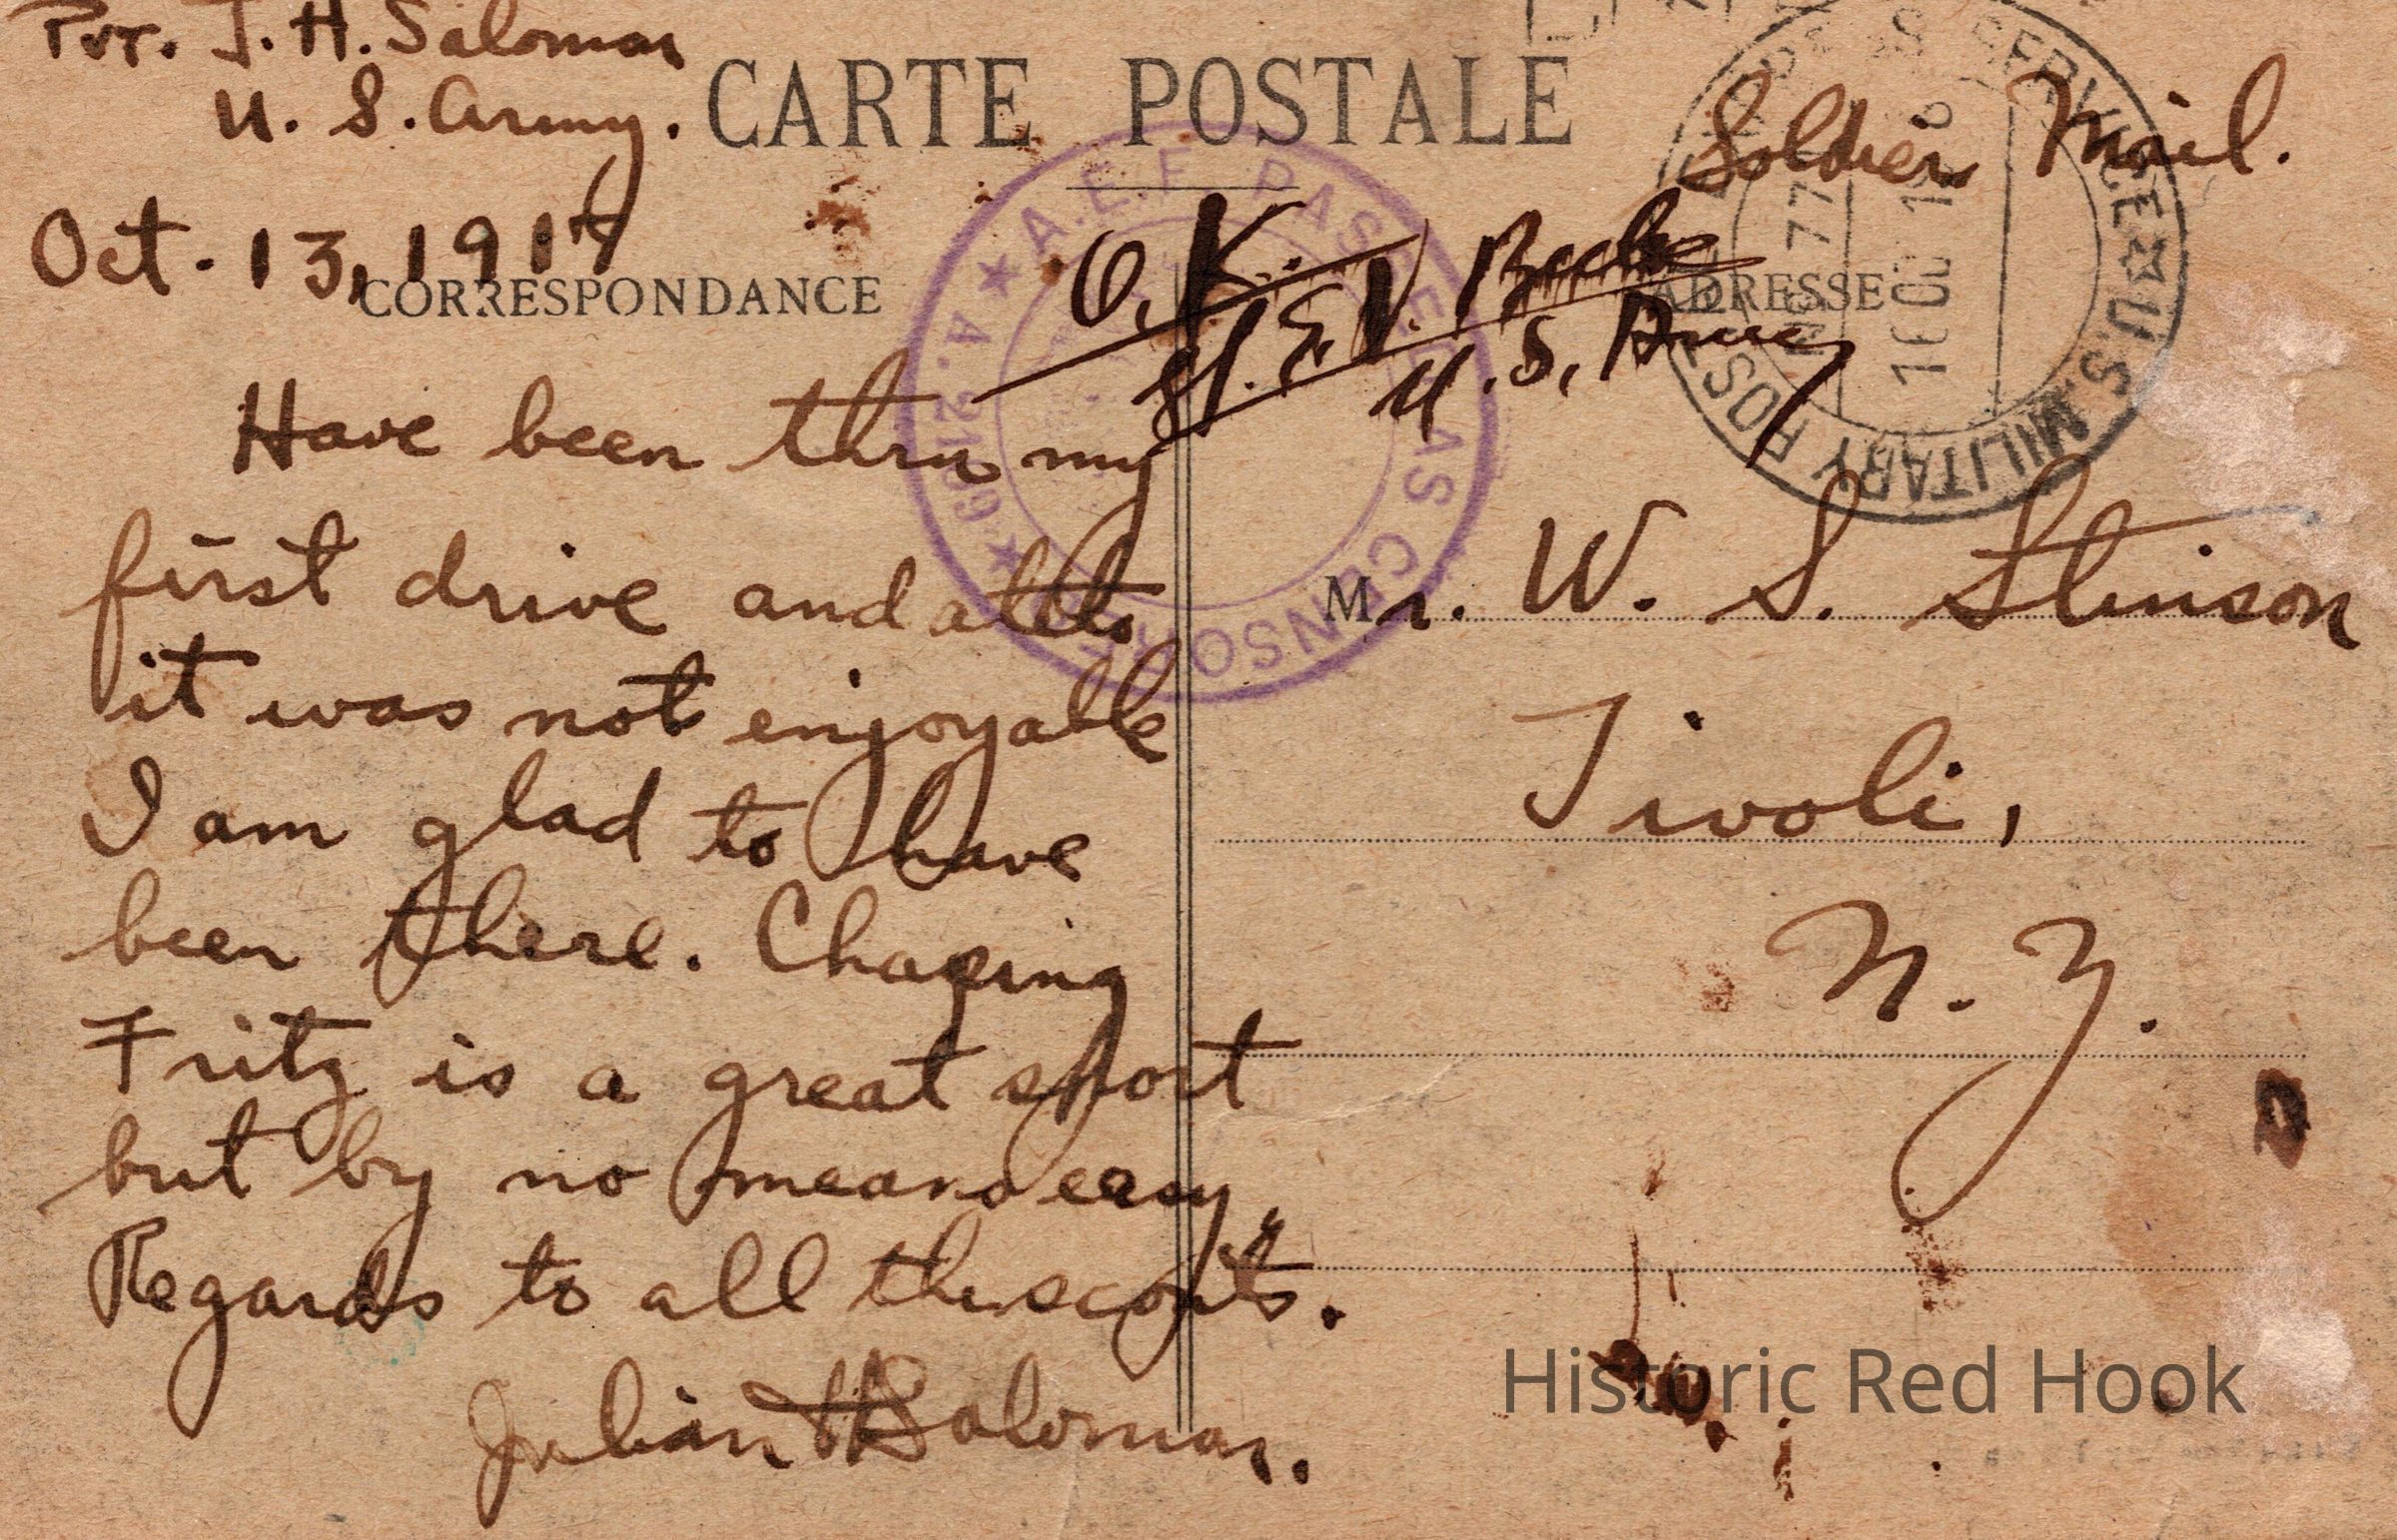 Pvt. J. H. Salomon
U. S. Army.
CARTE POSTALE
Soldier Mail.
Oct. 13, 191
CORRESPONDANCE
ADRESSE
O.K.
U. S. Army
A.E.F. PASSED AS CENSORED
U.S. MILITARY POST SERVICE
Have been thru my
first drive and altho
it was not enjoyable
I am glad to have
been there. Chasing
Fritz is a great sport
but by no means easy
Regards to all the scouts.
Julian H Salomon.
Mr. W. S. Stinson
Tivoli,
N. Y.
Historic Red Hook